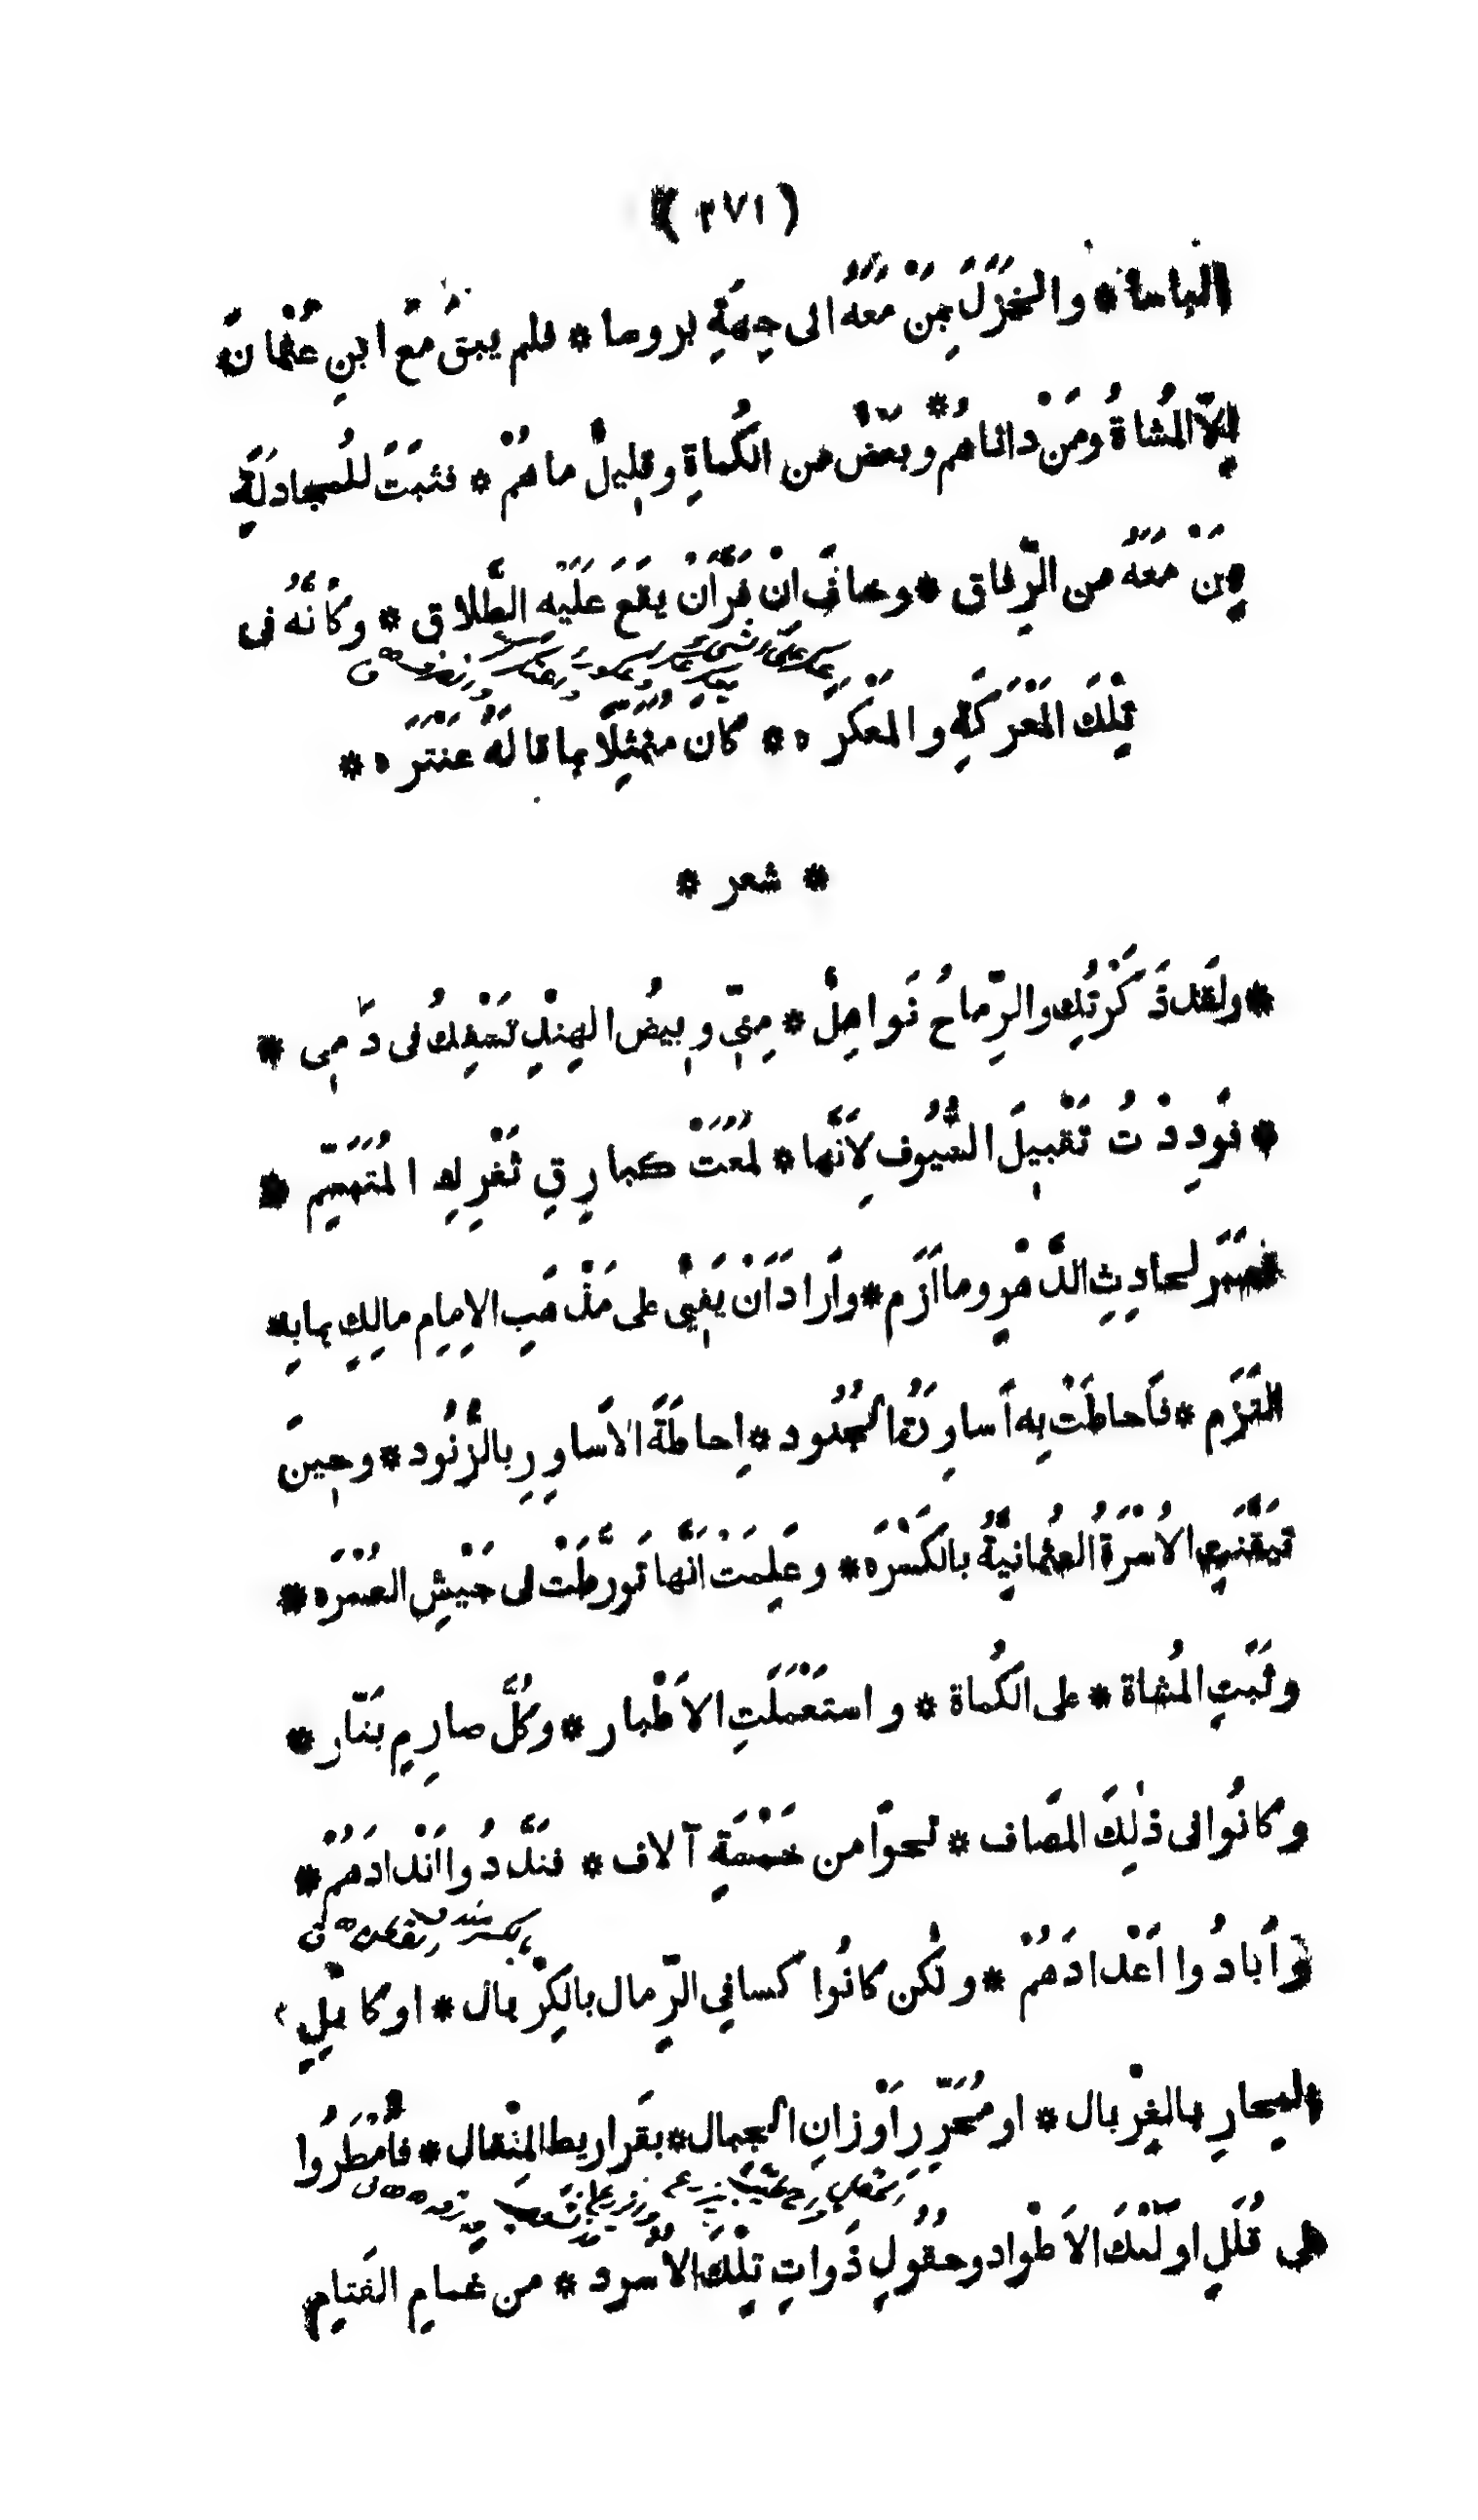 ( ٢٧١ )
الباسا * وانخزَلَ بِمَنْ مَعَهُ الى جِهَةِ بروسا * فلم يبقَ مَعَ ابنِ عُثْمانَ
اِلّا المُشاةُ ومَنْ داناهُمْ * وبَعْضٌ من الكُماةِ وقليلٌ ما هُمْ * فثبَتَ للمجادلَةِ
بِمَنْ مَعَهُ من الرِّفاق * وخافَ انْ فَرَّ اَنْ يقَعَ عَلَيْهِ الطَّلاق * وكاَنَّهُ فى
تِلْكَ المَعْرَكَةِ والمَعْكَرَه * كانَ مُتَمَثِّلًا بما قالَهُ عَنْتَرَه *
* شعر *
* ولقد ذَكَرْتُكِ والرِّماحُ نَواهِلٌ * مِنّي وبيضُ الهِنْدِ تَسْفِكُ فى دَمى *
* فوَدِدْتُ تَقْبيلَ السُّيُوفِ لِاَنَّها * لَمَعَتْ كبارِقِ ثَغْرِكِ المُتَبَسِّمِ *
فصَبَرَ لحادِثِ الدَّهْرِ وما اَزَم * واَرادَ اَنْ يَفِىَ على مَذْهَبِ الاِمامِ مالِكٍ بما بِه
الْتَزَم * فاَحاطَتْ بِه اَساوِرَةُ الجُنُود * اِحاطَةَ الاَساوِرِ بالزُّنُود * وحينَ
تيَقَّنَتِ الاُسْرَةُ العُثْمانِيَّةُ بالكَسْرَه * وعَلِمَتْ اَنَّها تَورَّطَتْ فى جَيْشِ العُسْرَه *
وثَبَتِ المُشاة * على الكُماة * واستَعْمَلَتِ الاَطْبار * وكُلَّ صارِمٍ بَتّار *
وكانُوا فى ذلِكَ المصَاف * نحوًا من خمسَةِ آلاف * فنَدَّدُوا اَنْدادَهُمْ *
واَبادُوا اَعْدادَهُمْ * ولكن كانُوا كسافِى الرِّمال بالكِرْبال * او كائِلِ
البِحارِ بالغِرْبال * او مُحَرِّرِ اَوْزانِ الجِبال * بقَراريط المِثْقال * فاَمْطَرُوا
على قُلَلِ اولَئكَ الاَطْواد وحقُولِ ذَواتِ تِلْكَ الاُسود * من غَمامِ القَتام